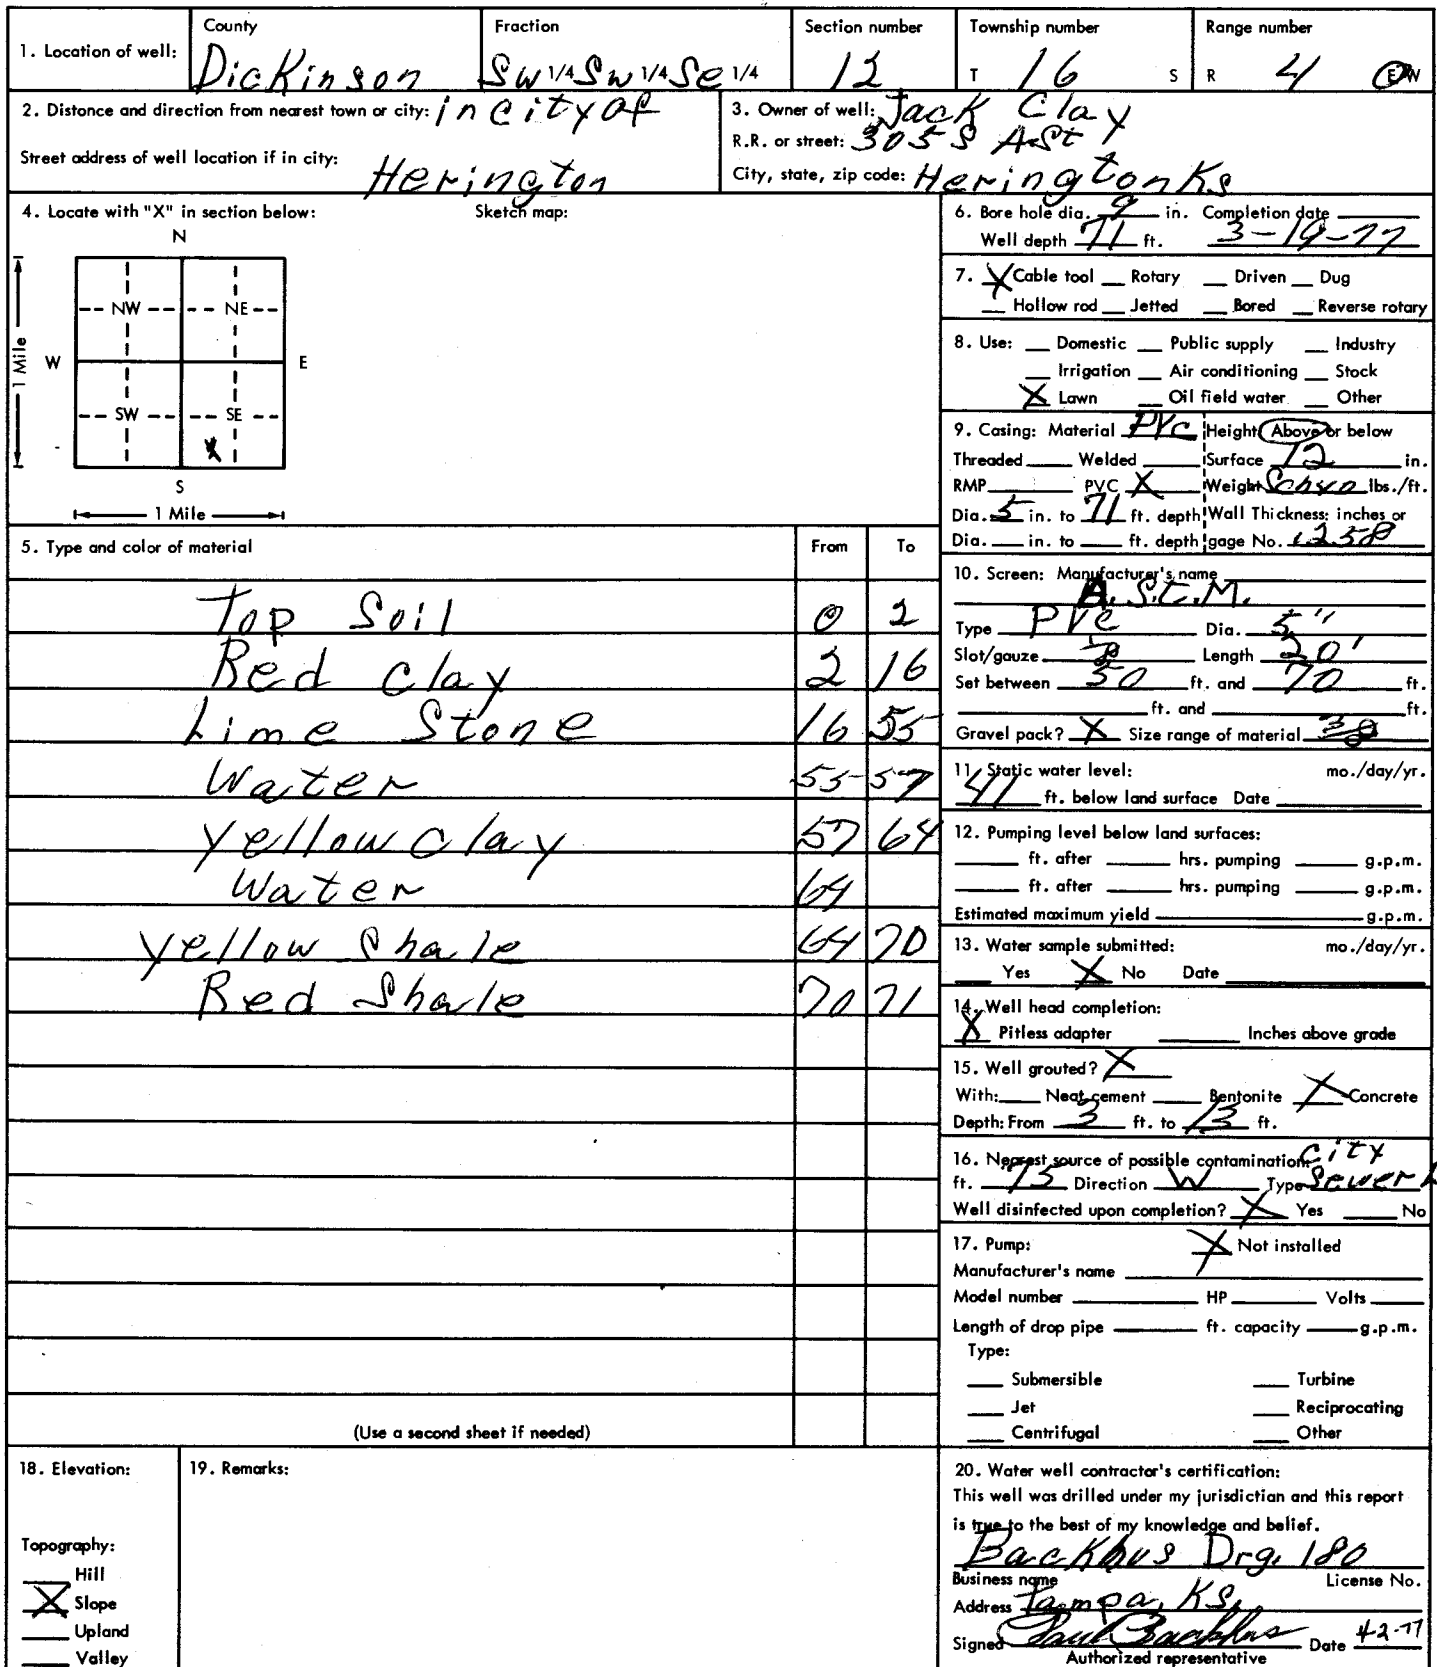 County Fraction Section number Township number Range number
1. Location of well: Dickinson Sw 1/4 Sw 1/4 Se 1/4 12 T 16 S R 4 E W
2. Distance and direction from nearest town or city: in city of
Street address of well location if in city: Herington
3. Owner of well: Jack Clay
R.R. or street: 305 S A St
City, state, zip code: Herington Ks
4. Locate with "X" in section below: Sketch map:
N
NW NE
W E
1 Mile
SW SE
X
S
1 Mile
6. Bore hole dia. 9 in. Completion date
Well depth 71 ft. 3-19-77
7. X Cable tool Rotary Driven Dug
Hollow rod Jetted Bored Reverse rotary
8. Use: Domestic Public supply Industry
Irrigation Air conditioning Stock
X Lawn Oil field water Other
9. Casing: Material PVC Height: Above or below
Threaded Welded Surface 12 in.
RMP PVC X Weight lbs./ft.
Dia. 5 in. to 71 ft. depth Wall Thickness: inches or
Dia. in. to ft. depth gage No. .258
5. Type and color of material From To
Top Soil 0 2
Red Clay 2 16
Lime Stone 16 55
Water 55-57
Yellow Clay 57 64
Water 64
Yellow Shale 64 70
Red Shale 70 71
(Use a second sheet if needed)
10. Screen: Manufacturer's name
A.S.t.M.
Type PVC Dia. 5"
Slot/gauze Length 20'
Set between 50 ft. and 70 ft.
ft. and ft.
Gravel pack? X Size range of material
11. Static water level: mo./day/yr.
41 ft. below land surface Date
12. Pumping level below land surfaces:
ft. after hrs. pumping g.p.m.
ft. after hrs. pumping g.p.m.
Estimated maximum yield g.p.m.
13. Water sample submitted: mo./day/yr.
Yes X No Date
14. Well head completion:
X Pitless adapter Inches above grade
15. Well grouted? X
With: Neat cement Bentonite X Concrete
Depth: From 3 ft. to 13 ft.
16. Nearest source of possible contamination: City
ft. 75 Direction W Type Sewer
Well disinfected upon completion? X Yes No
17. Pump: X Not installed
Manufacturer's name
Model number HP Volts
Length of drop pipe ft. capacity g.p.m.
Type:
Submersible Turbine
Jet Reciprocating
Centrifugal Other
18. Elevation:
Topography:
Hill
X Slope
Upland
Valley
19. Remarks:
20. Water well contractor's certification:
This well was drilled under my jurisdiction and this report
is true to the best of my knowledge and belief.
Backhus Drg. 180
Business name License No.
Address Tampa, KS.
Signed Paul Backhus Date 4-2-77
Authorized representative